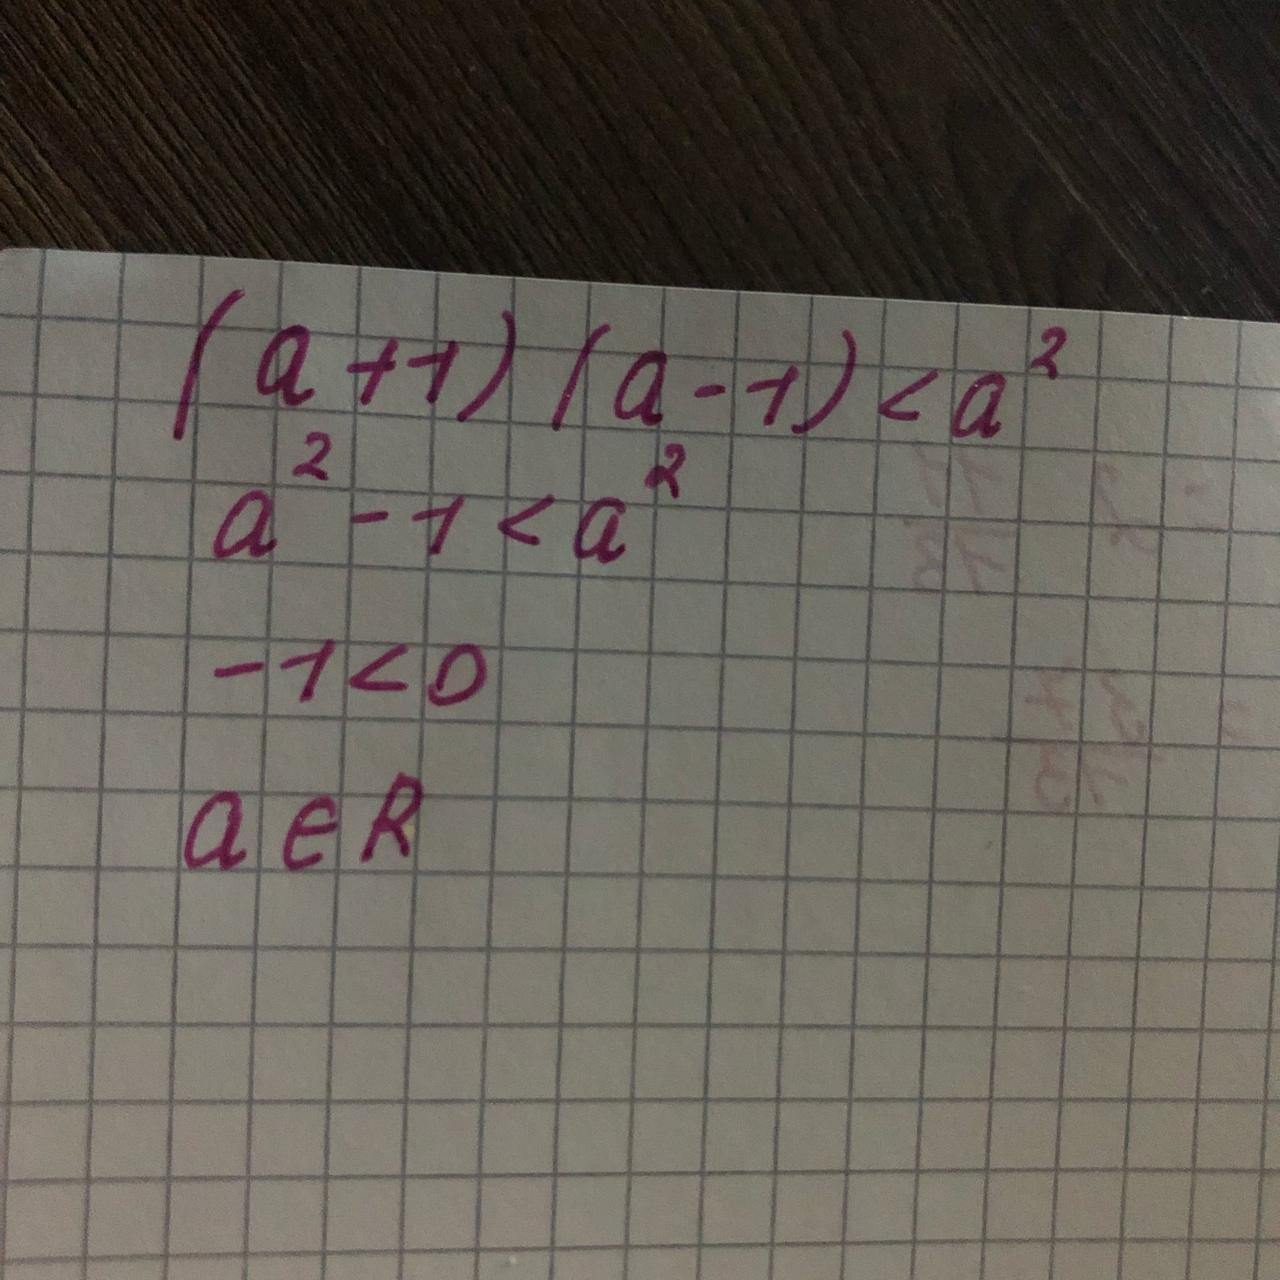 (a+1)(a-1)<a²
a²-1<a²
-1<0
a∈R